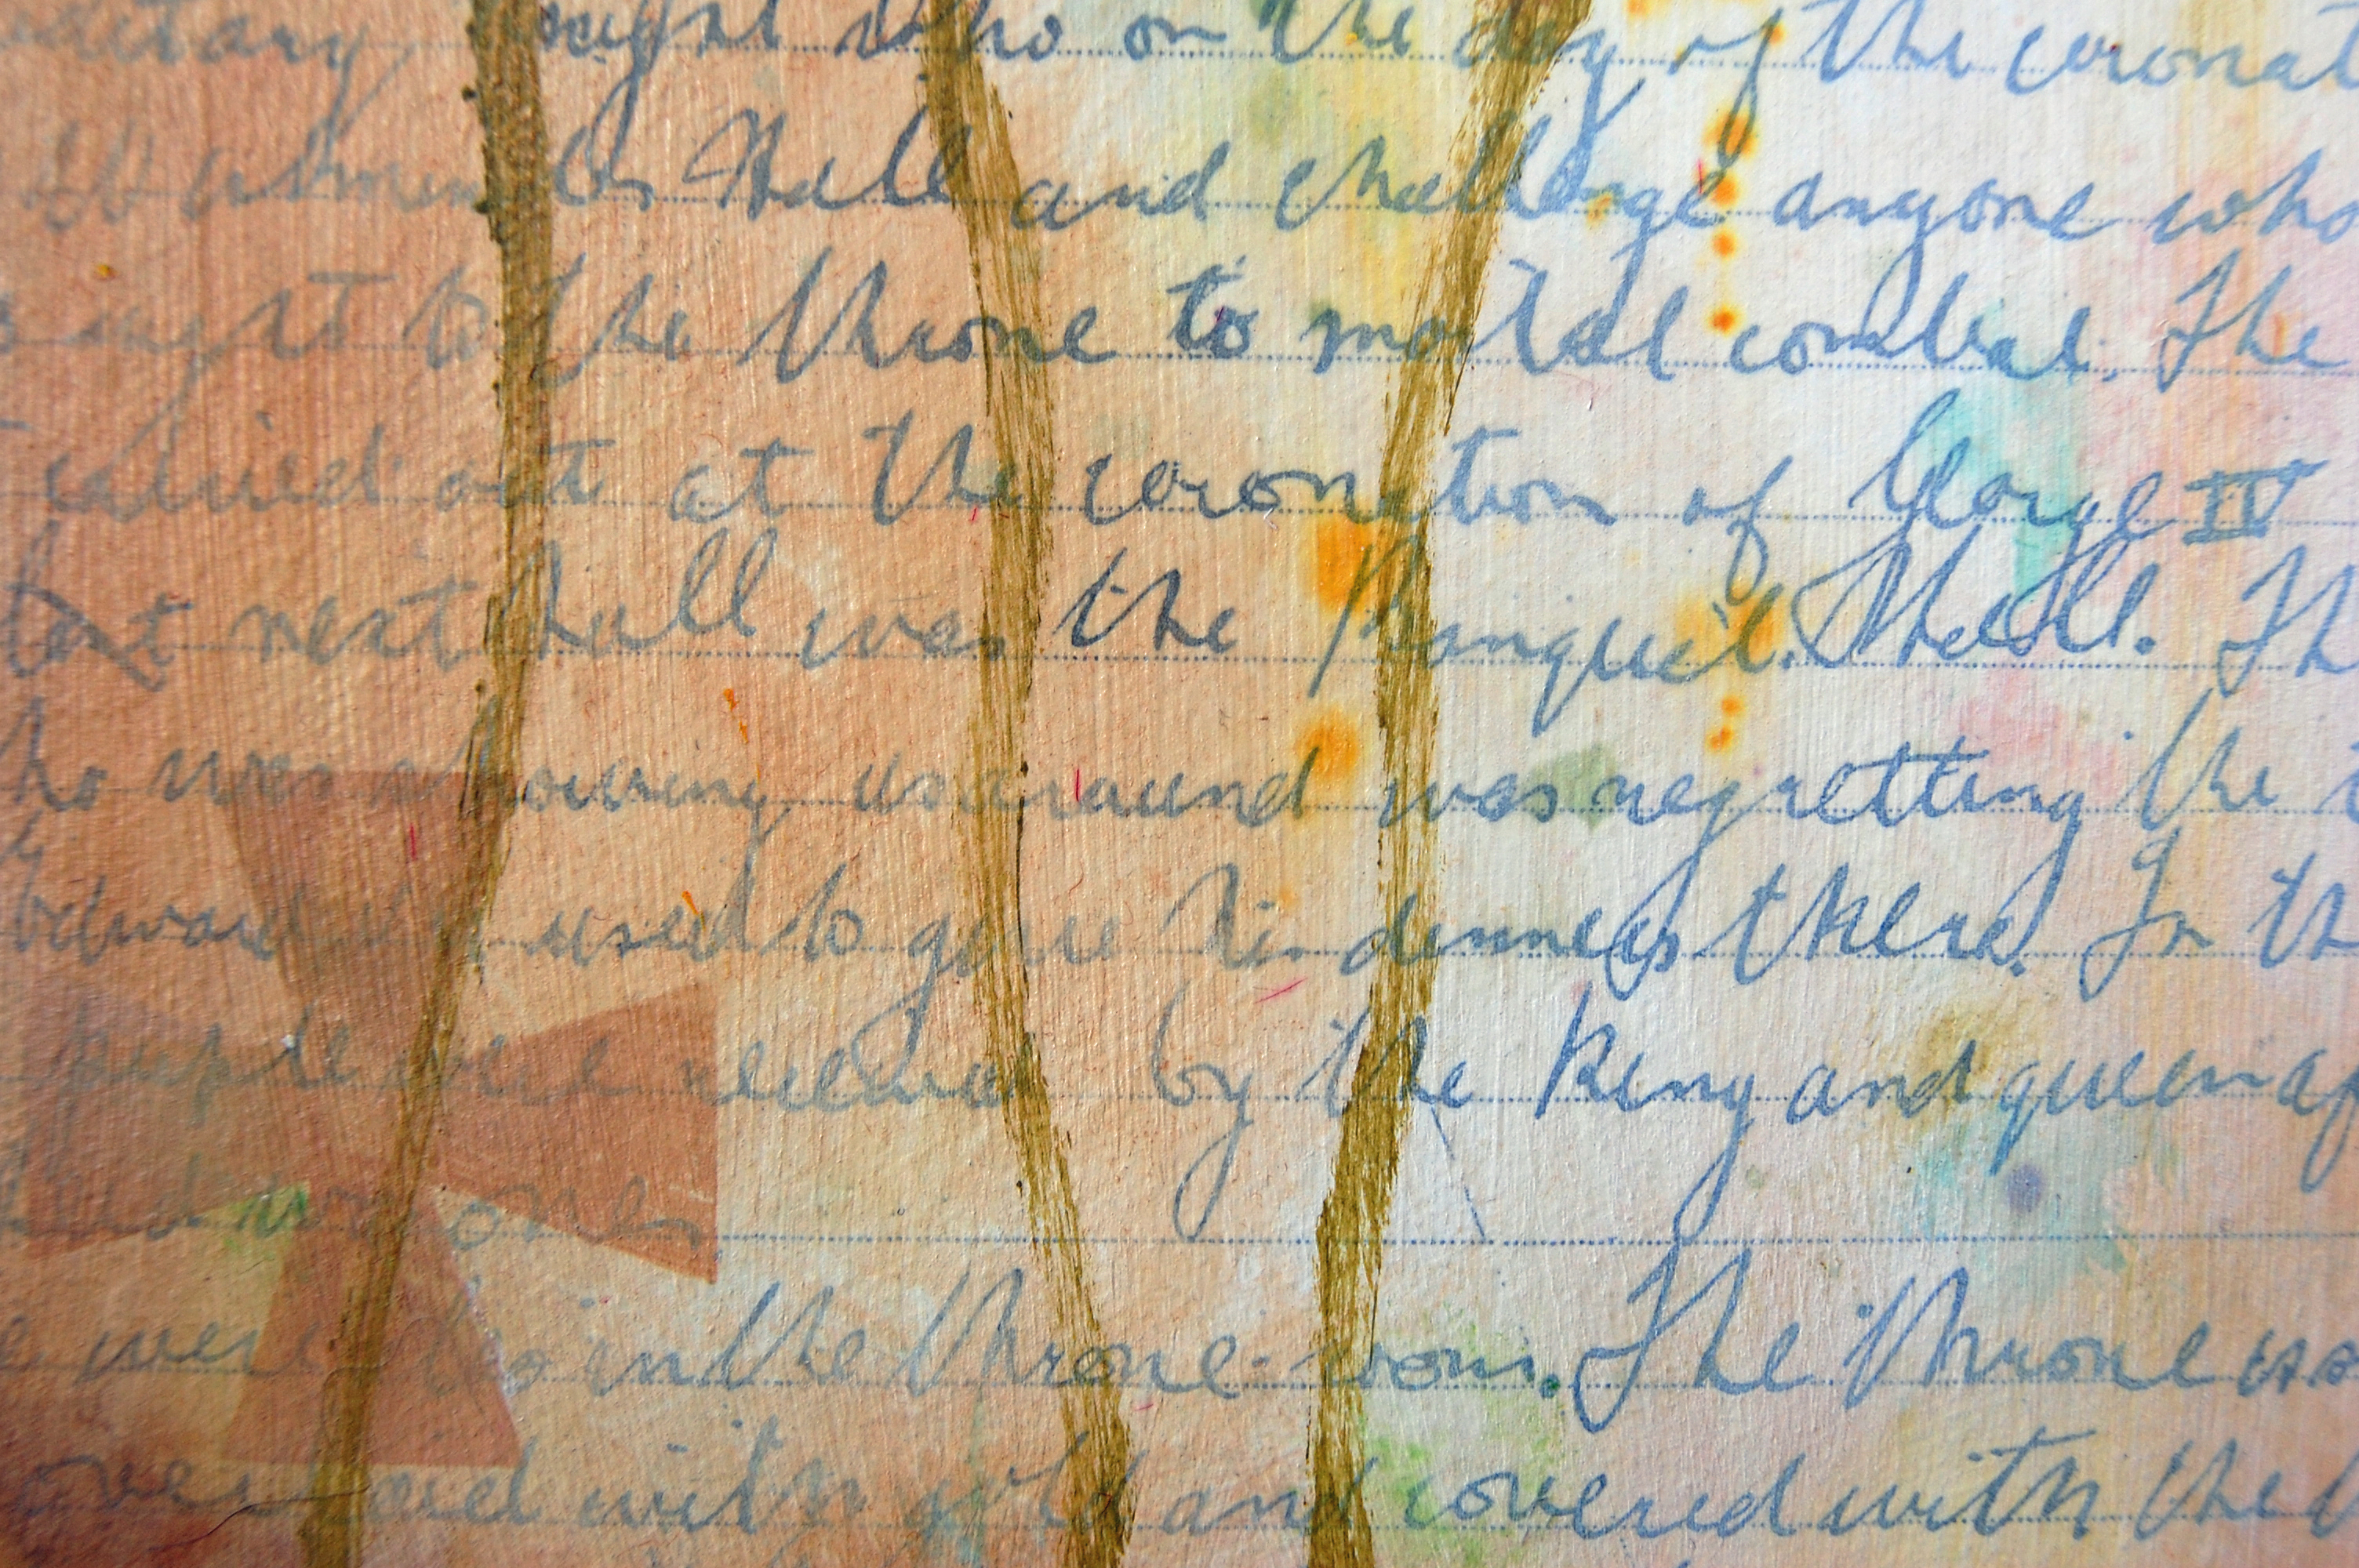 knight who on the day of the coronat
Hall and challenge anyone who
right to the throne to mortal combat. The
carried out at the coronation of George IV
next hall was the Banquet. Hall. Th
ho was showing us around was regretting the
Edward used to give his dinners there. In th
people are received by the King and queen af

were in the throne-room. The throne was
over laid with gold and covered with the